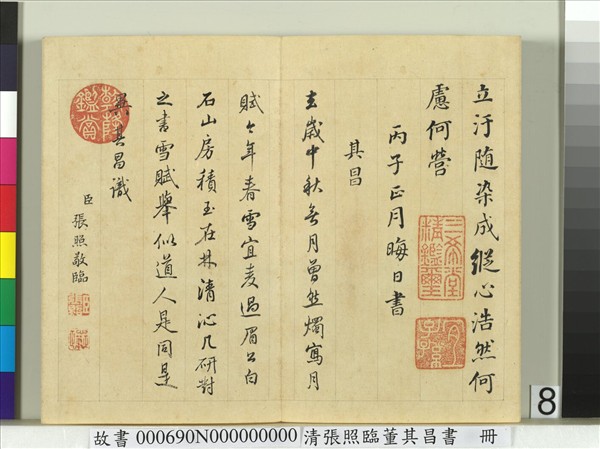 立汙随染成縱心浩然何
慮何營
丙子正月晦日書
其昌
去歲中秋無月曾然燭寫月
賦今年春雪宜麦過眉公白
石山房積玉在林清沁几研對
之書雪賦舉似道人是同是
異其昌識
臣張照敬臨
乾隆鑑賞
三希堂精鑑璽
宜子孫
8
故書 000690N000000000 清張照臨董其昌書 冊